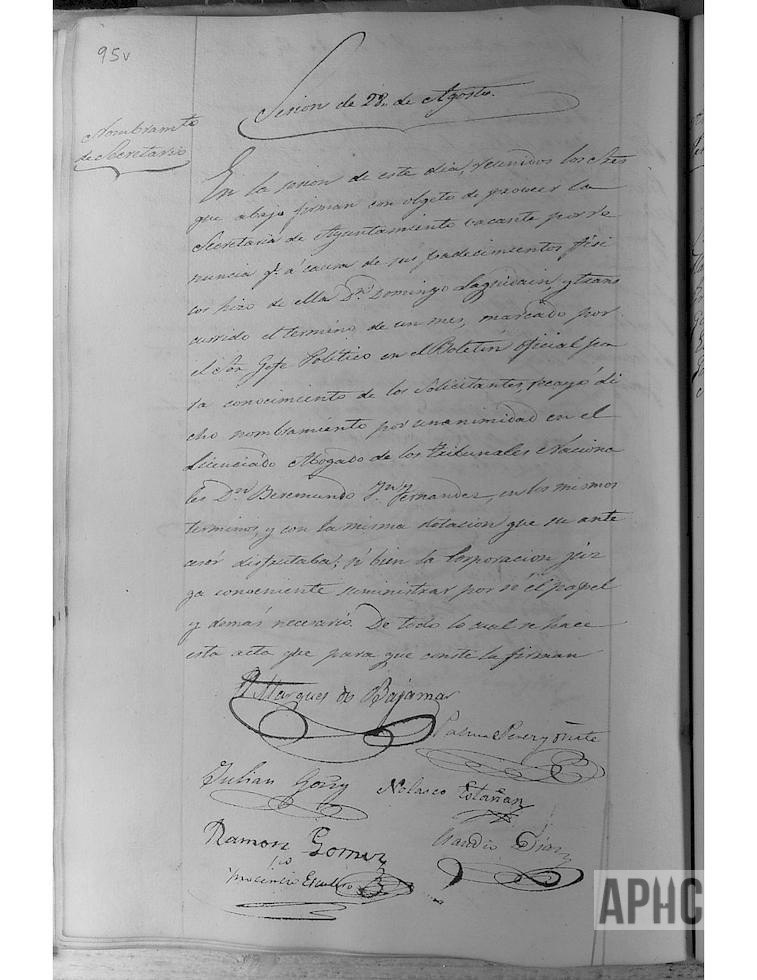 95v
Sesion de 28. de Agosto.
Nombramto
de Secretario
En la sesion de este dia, reunidos los Sres
que abajo firman con objeto de proveer la
Secretaria de Ayuntamiento vacante por re
nuncia qe. á causa de sus padecimientos fisi
cos hizo de ella Dn. Domingo y trans
currido el termino de un mes, marcado por
el Sor. Gefe Politico en el Boletin oficial pa
ra conocimiento de los Solicitantes, recayó di
cho nombramiento por unanimidad en el
Licenciado Abogado de los Tribunales Naciona
les Dn. Beremundo Fernandez, en los mismos
terminos, y con la misma dotacion que su ante
cesor disfrutaba; si bien la Corporacion juz
ga conveniente suministrar por si el papel
y demás necesario. De todo lo cual se hace
esta acta que para que conste la firman
El Marques de Bajamar
Perez Oñate
Julian Nolasco Estañan
Ramon Gomez Claudio Diaz
Escudero
APHC